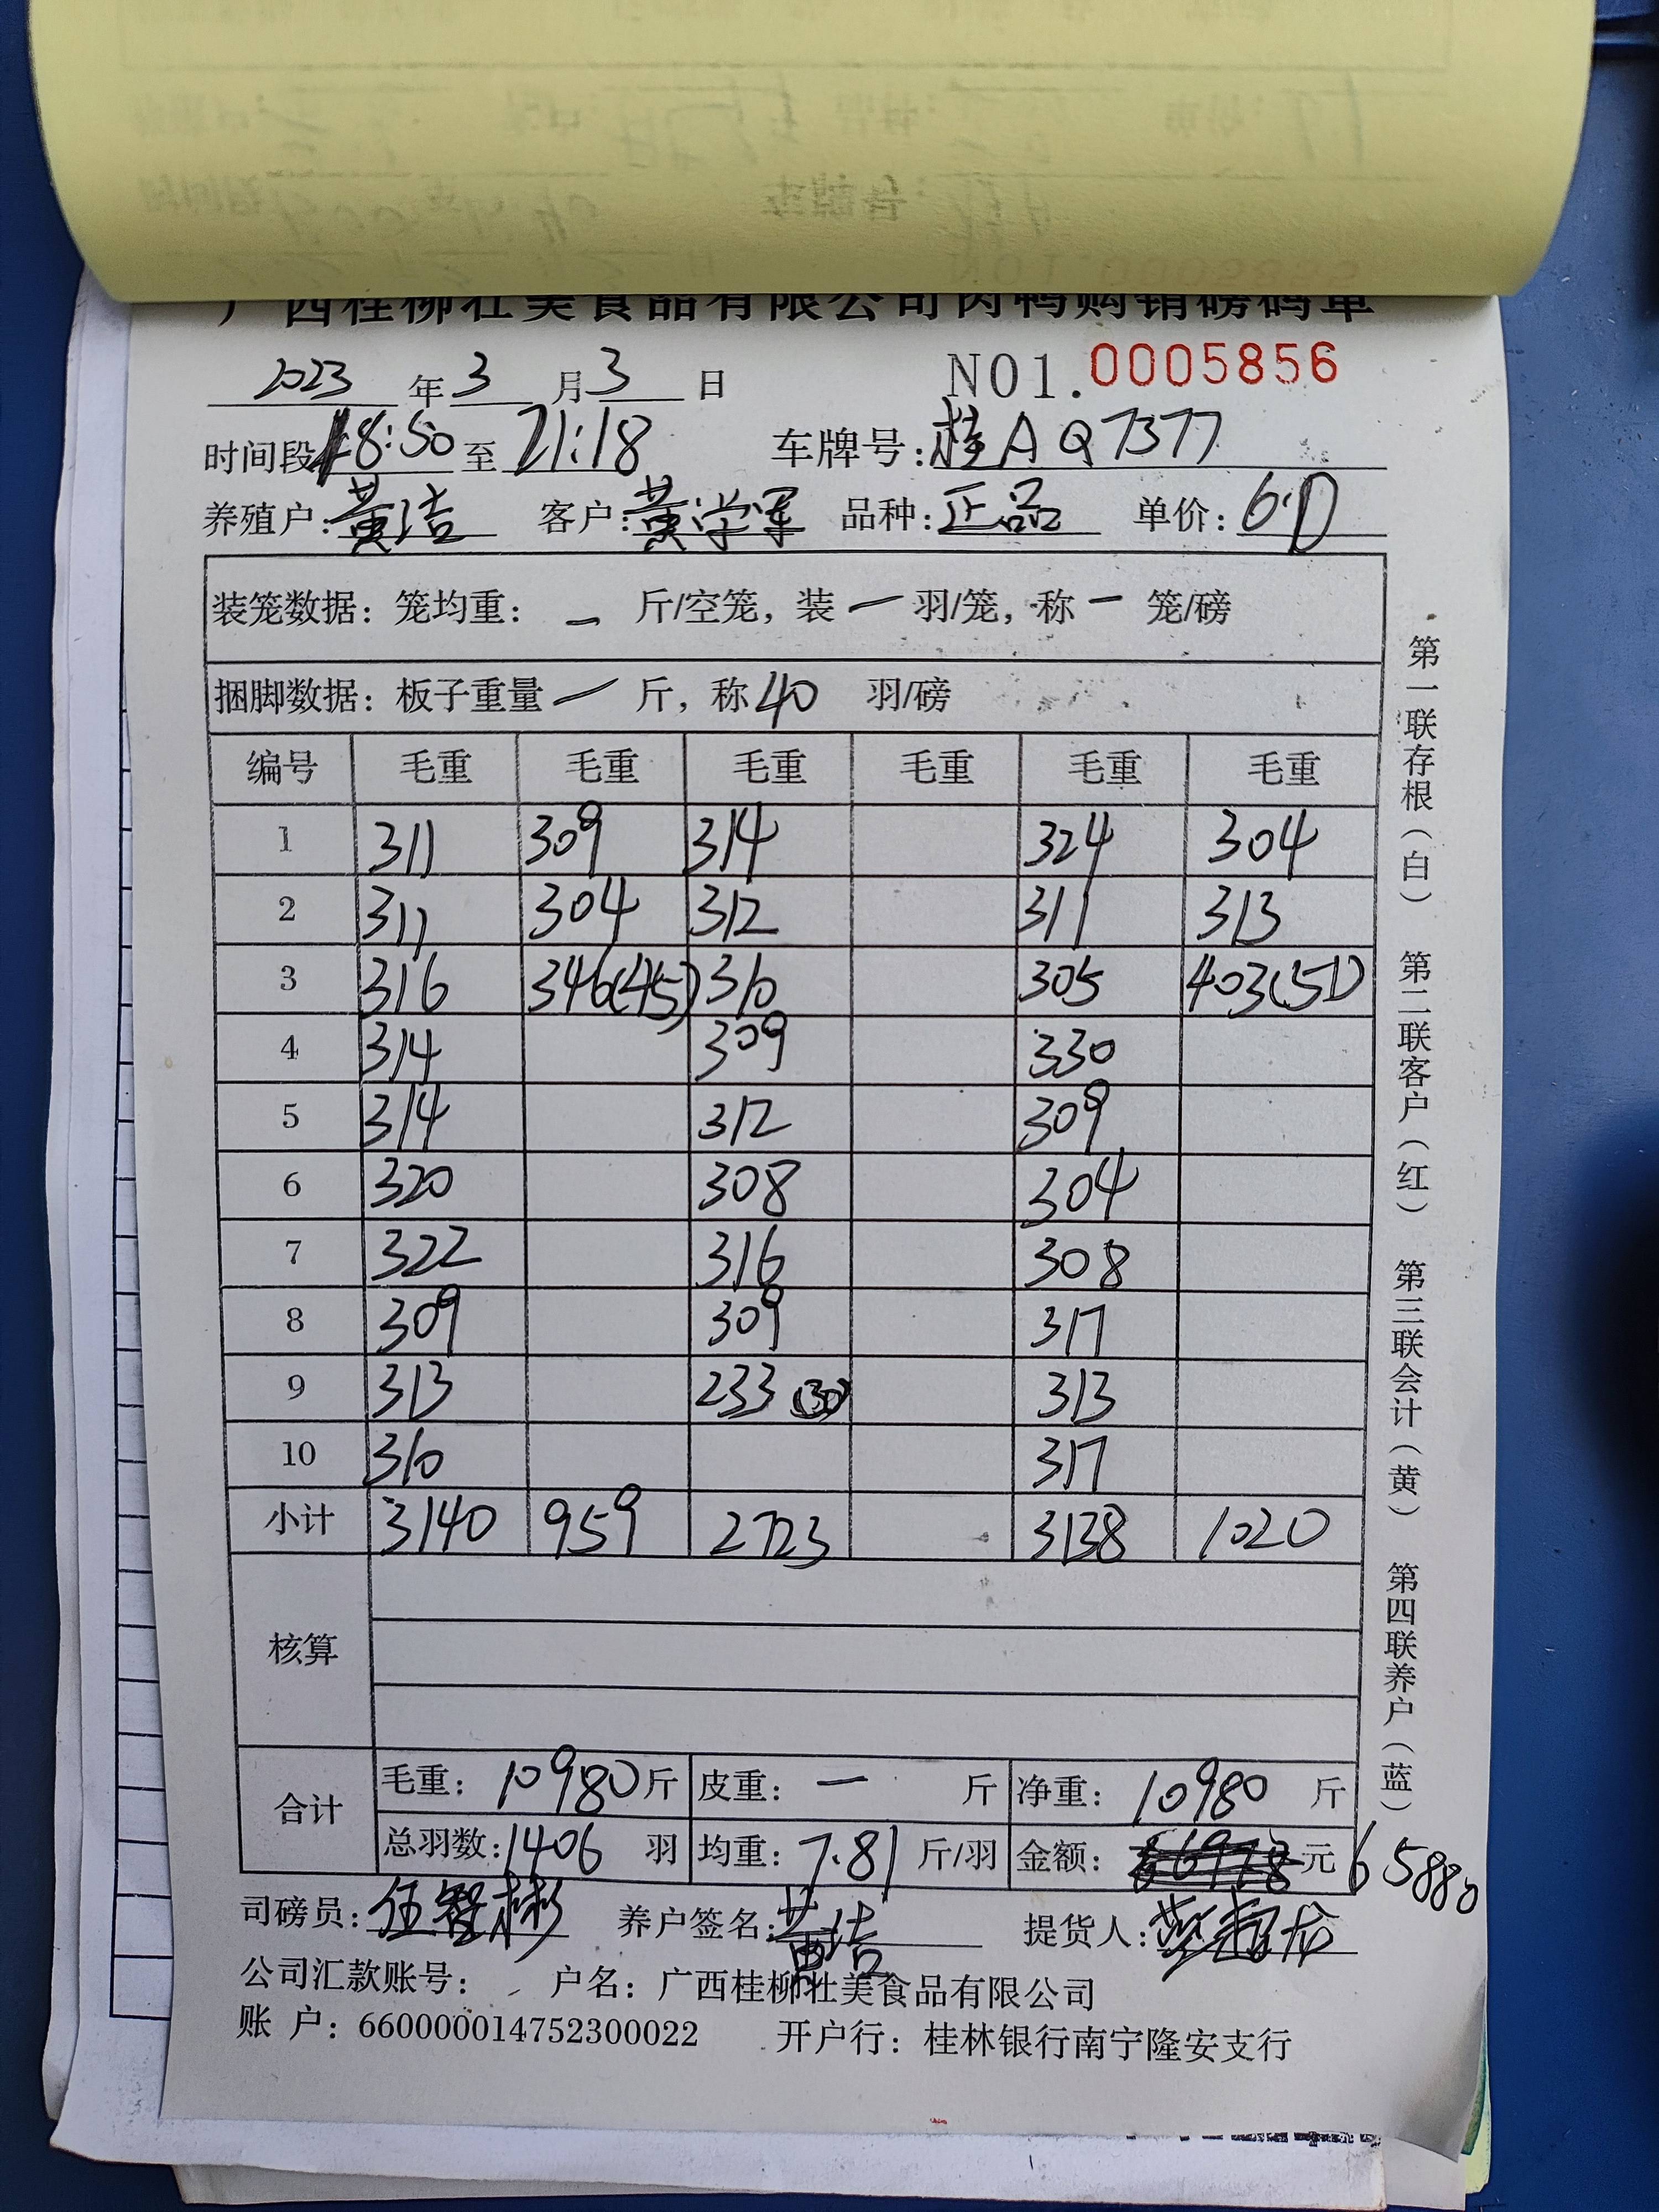 广西桂柳壮美食品有限公司肉鸭购销磅码单
2023年3月3日 NO1.0005856
时间段18:50至21:18 车牌号:桂AQ7377
养殖户:黄洁 客户:黄学军 品种:正品 单价:6.0
装笼数据: 笼均重: 一 斤/空笼, 装 一 羽/笼, 称 一 笼/磅
捆脚数据: 板子重量 一 斤, 称 40 羽/磅
编号 毛重 毛重 毛重 毛重 毛重 毛重
1 311 309 314 324 304
2 311 304 312 311 313
3 316 346(45) 310 305 403(51)
4 314 309 330
5 314 312 309
6 320 308 304
7 322 316 308
8 309 309 317
9 313 233 (30) 313
10 310 317
小计 3140 959 2723 3138 1020
核算
合计 毛重: 10980斤 皮重: 一 斤 净重: 10980 斤
总羽数:1406 羽 均重: 7.81 斤/羽 金额: 元 65880
司磅员:伍智彬 养户签名:黄洁 提货人:
公司汇款账号: 户名: 广西桂柳壮美食品有限公司
账 户: 660000014752300022 开户行: 桂林银行南宁隆安支行
第一联存根(白) 第二联客户(红) 第三联会计(黄) 第四联养户(蓝)